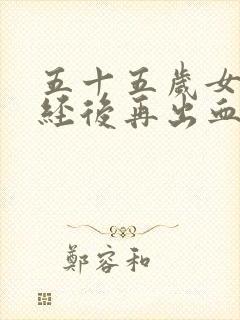 五十五歲女
經後再出血
鄭容和